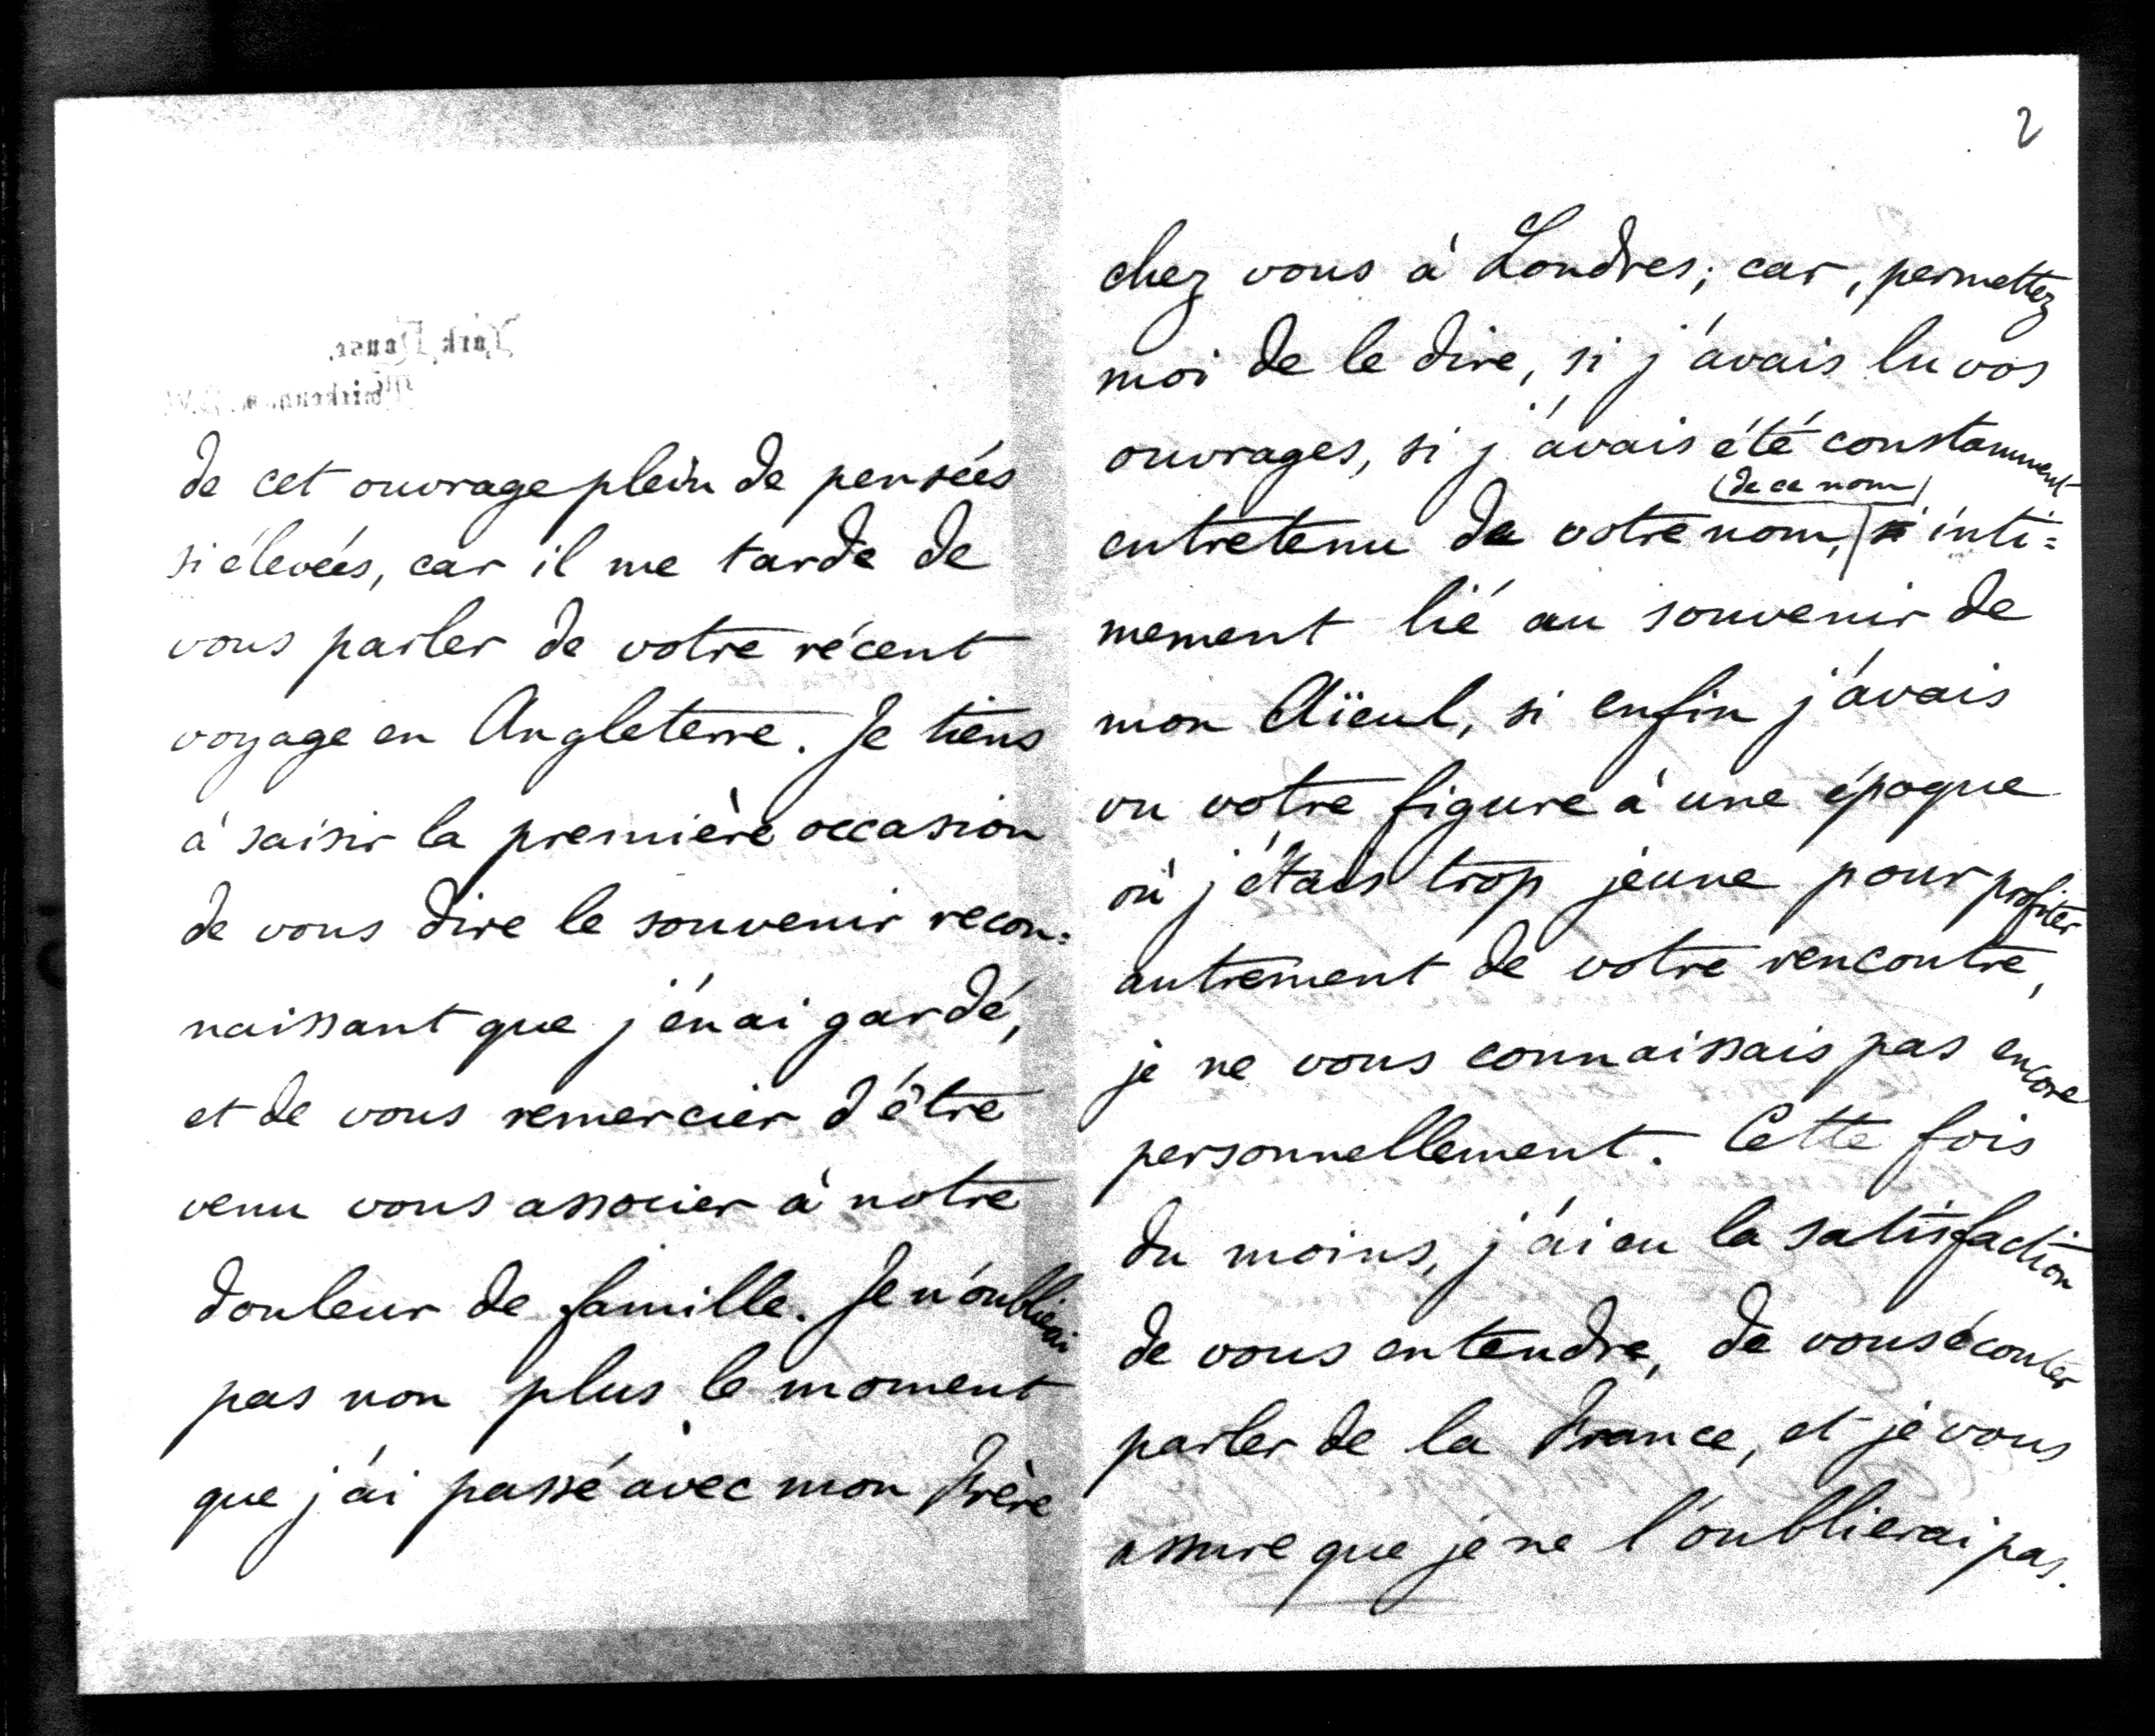 York House,
Twickenham, S.W.
de cet ouvrage plein de pensées
si élevées, car il me tarde de
vous parler de votre récent
voyage en Angleterre. Je tiens
à saisir la première occasion
de vous dire le souvenir recon=
naissant que j'en ai gardé,
et de vous remercier d'être
venu vous associer à notre
douleur de famille. Je n'oublierai
pas non plus le moment
que j'ai passé avec mon Frère
2
chez vous à Londres; car, permettez
moi de le dire, si j'avais lu vos
ouvrages, si j'avais été constamment
(de ce nom)
entretenu de votre nom, si inti=
mement lié au souvenir de
mon Aïeul, si enfin j'avais
vu votre figure à une époque
où j'étais trop jeune pour profiter
autrement de votre rencontre,
je ne vous connaissais pas encore
personnellement. Cette fois
du moins, j'ai eu la satisfaction
de vous entendre, de vous écouter
parler de la France, et je vous
assure que je ne l'oublierai pas.